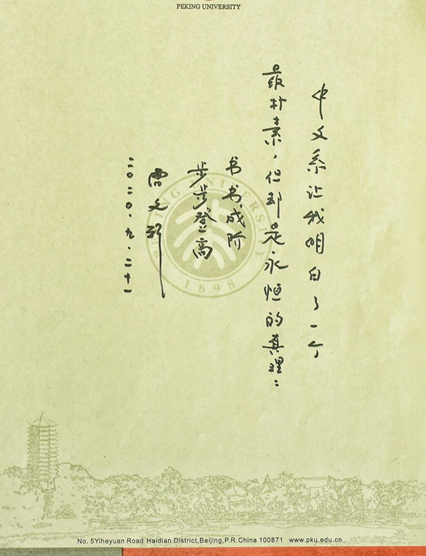 PEKING UNIVERSITY
中文系让我明白了一个
最朴素,但却是永恒的真理:
书书成阶
步步登高
曹文轩
二〇二〇.九.二十一
PEKING UNIVERSITY
1898
No. 5Yiheyuan Road Haidian District,Beijing,P.R.China 100871 www.pku.edu.cn